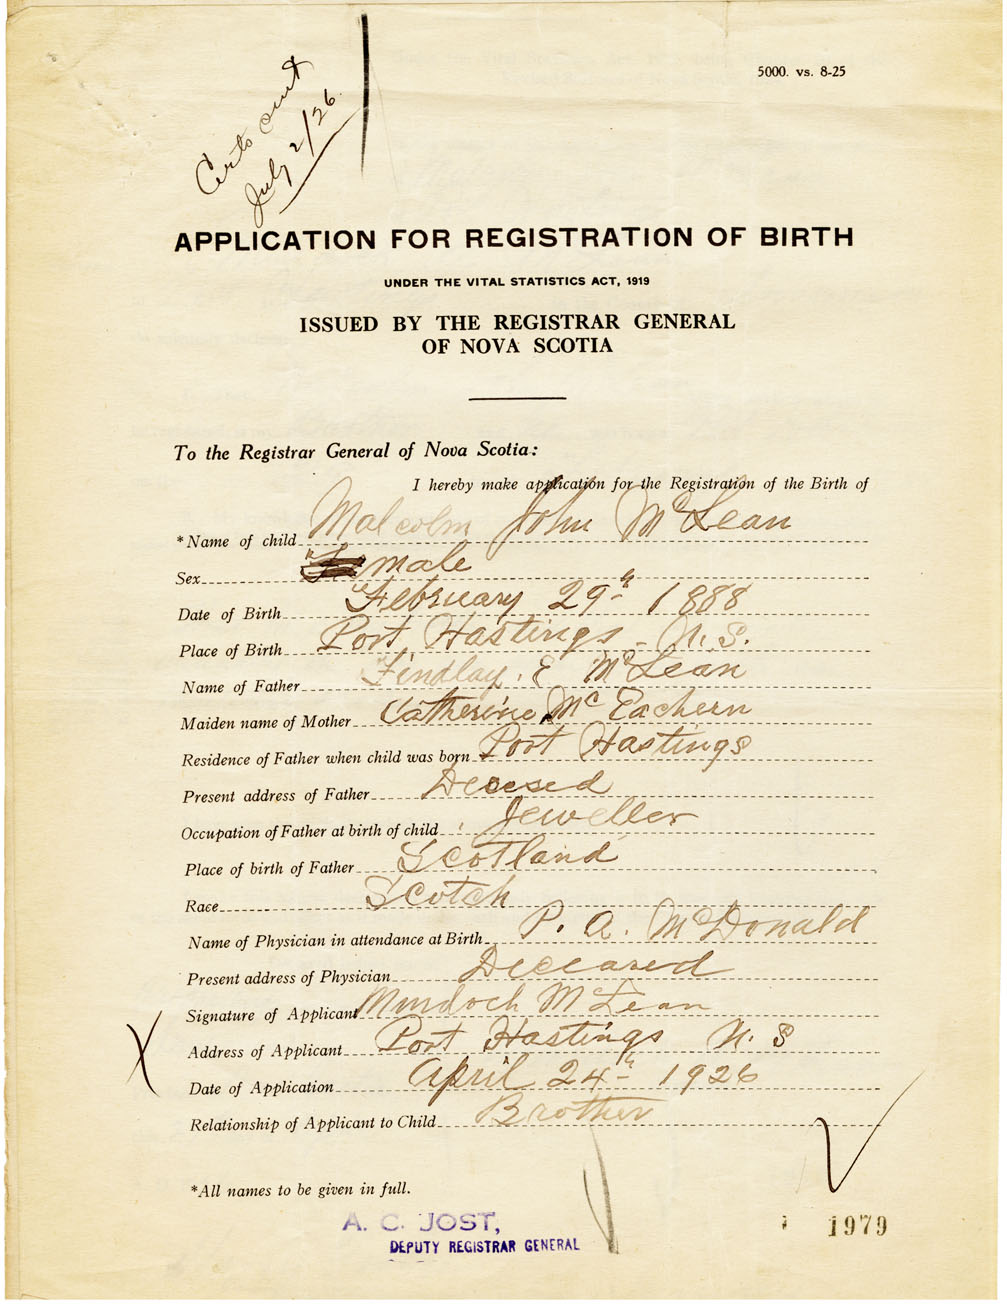 5000. vs. 8-25
Certs out
July 2/26.
APPLICATION FOR REGISTRATION OF BIRTH
UNDER THE VITAL STATISTICS ACT, 1919
ISSUED BY THE REGISTRAR GENERAL
OF NOVA SCOTIA
To the Registrar General of Nova Scotia:
I hereby make application for the Registration of the Birth of
*Name of child Malcolm John McLean
Sex male
Date of Birth February 29th 1888
Place of Birth Port Hastings - N.S.
Name of Father Findlay. E McLean
Maiden name of Mother Catherine McEachern
Residence of Father when child was born Port Hastings
Present address of Father Decesed
Occupation of Father at birth of child Jeweller
Place of birth of Father Scotland
Race Scotch
Name of Physician in attendance at Birth P. A. McDonald
Present address of Physician Deceased
Signature of Applicant Murdoch McLean
Address of Applicant Port Hastings N. S
Date of Application April 24th 1926
Relationship of Applicant to Child Brother
*All names to be given in full.
A. C. JOST,
DEPUTY REGISTRAR GENERAL
1979